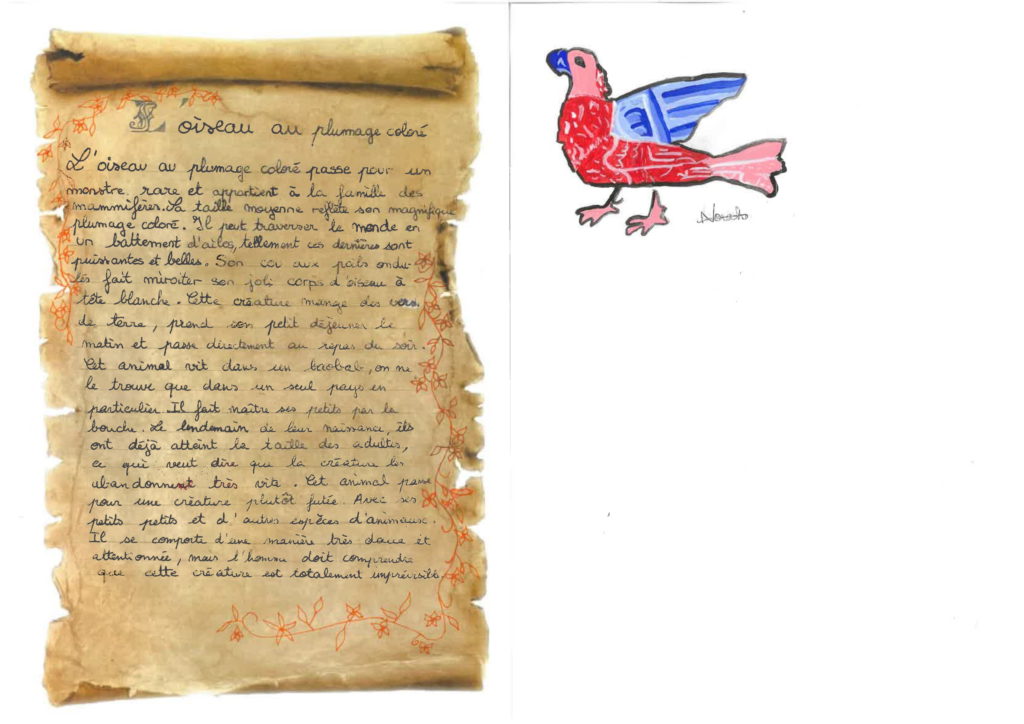 L'oiseau au plumage coloré
L'oiseau au plumage coloré passe pour un
monstre rare et appartient à la famille des
mammifères. Sa taille moyenne reflète son magnifique
plumage coloré. Il peut traverser le monde en
un battement d'ailes, tellement ces dernières sont
puissantes et belles. Son cou aux poils ondu-
lés fait miroiter son joli corps d'oiseau à
tête blanche. Cette créature mange des vers
de terre, prend son petit déjeuner le
matin et passe directement au repas du soir.
Cet animal vit dans un baobab, on ne
le trouve que dans un seul pays en
particulier. Il fait naître ses petits par la
bouche. Le lendemain de leur naissance, ils
ont déjà atteint la taille des adultes,
ce qui veut dire que la créature les
abandonnent très vite. Cet animal passe
pour une créature plutôt futée. Avec ses
petits petits et d'autres espèces d'animaux.
Il se comporte d'une manière très douce et
attentionnée, mais l'homme doit comprendre
que cette créature est totalement imprévisible